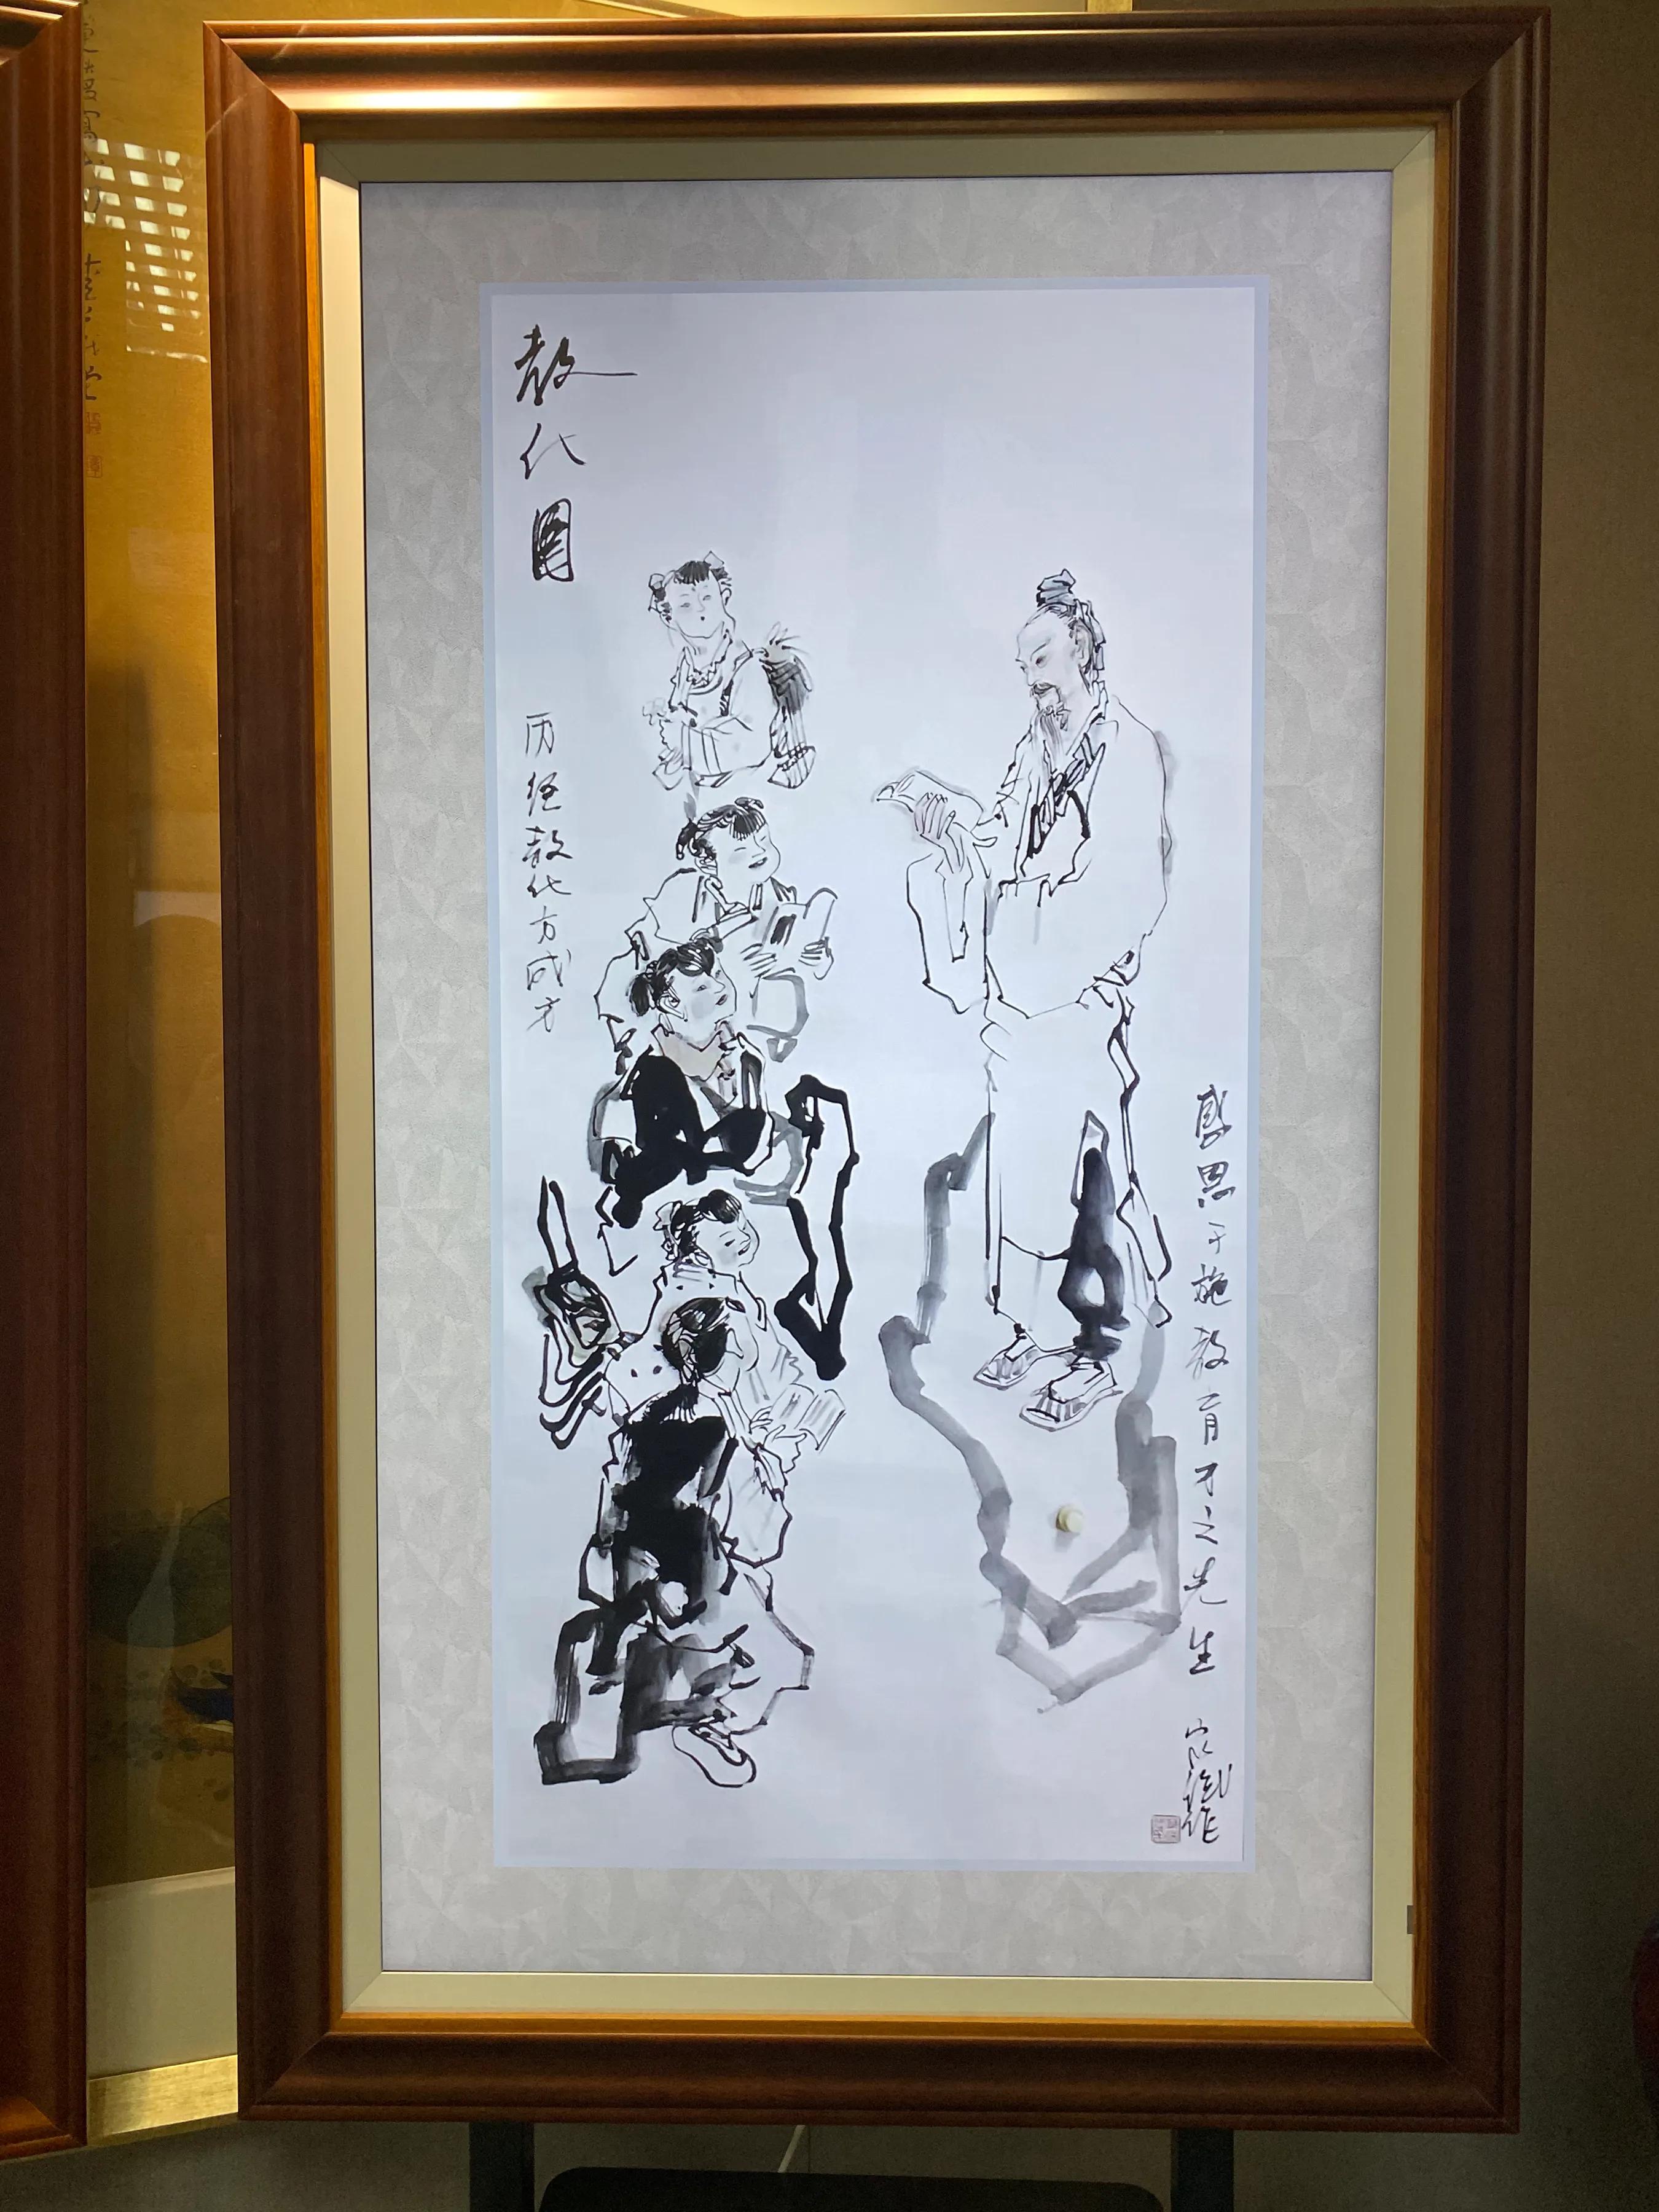 教化圖
历经教化方成才
感恩于施教育才之先生
作